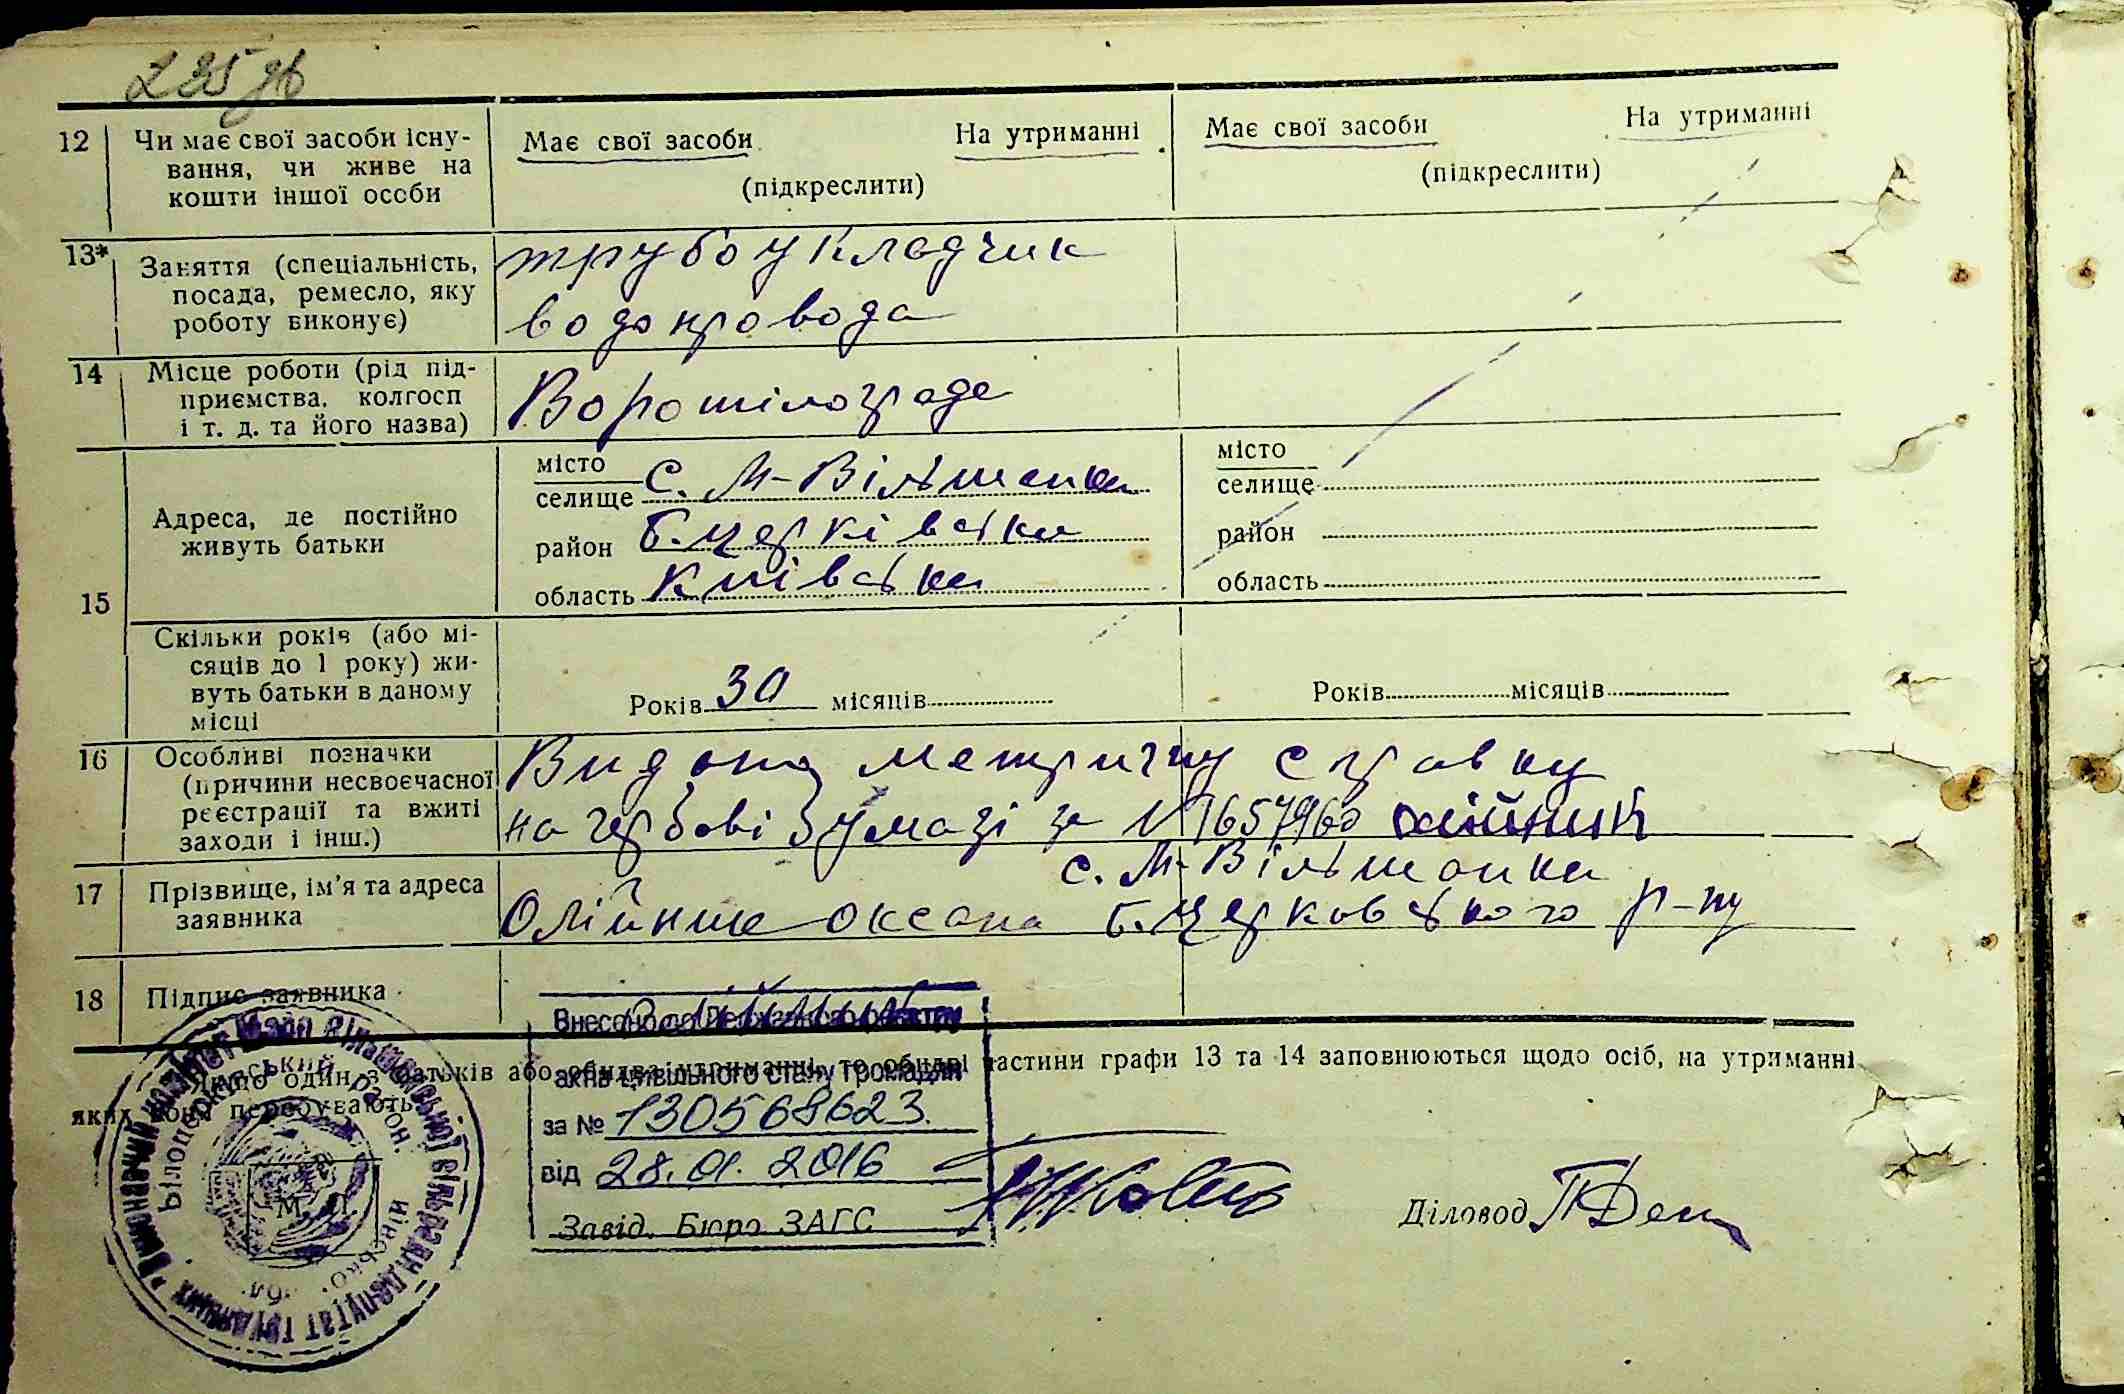 235 зв
12 Чи має свої засоби існу-
вання, чи живе на
кошти іншої особи
Має свої засоби На утриманні
(підкреслити)
Має свої засоби На утриманні
(підкреслити)
13* Заняття (спеціальність,
посада, ремесло, яку
роботу виконує)
трубоукладчик
водопровода
14 Місце роботи (рід під-
приємства, колгосп
і т. д. та його назва)
Ворошілограде
15
Адреса, де постійно
живуть батьки
місто
селище с. М-Вільшанка
район Б.Церківська
область Київська
місто
селище
район
область
Скільки років (або мі-
сяців до 1 року) жи-
вуть батьки в даному
місці
Років 30 місяців
Років місяців
16 Особливі позначки
(причини несвоєчасної
реєстрації та вжиті
заходи і інш.)
Видано метричну справку
на гербові бумазі за №
17 Прізвище, ім'я та адреса
заявника
с. М-Вільшанка
Олійник Оксана Б.Церковського р-ну
18 Підпис заявника
Якщо один з батьків або обидва на утриманні, то обидві частини графи 13 та 14 заповнюються щодо осіб, на утриманні
яких вони перебувають.
Внесено до Державного реєстру
актів цивільного стану громадян
за № 130568623
від 28.01.2016
Завід. Бюро ЗАГС
Діловод
М. П.